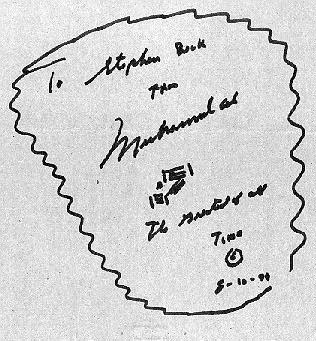 To Stephen Rock
From
Muhammad Ali
The Greatest of all
Time
8-10-79